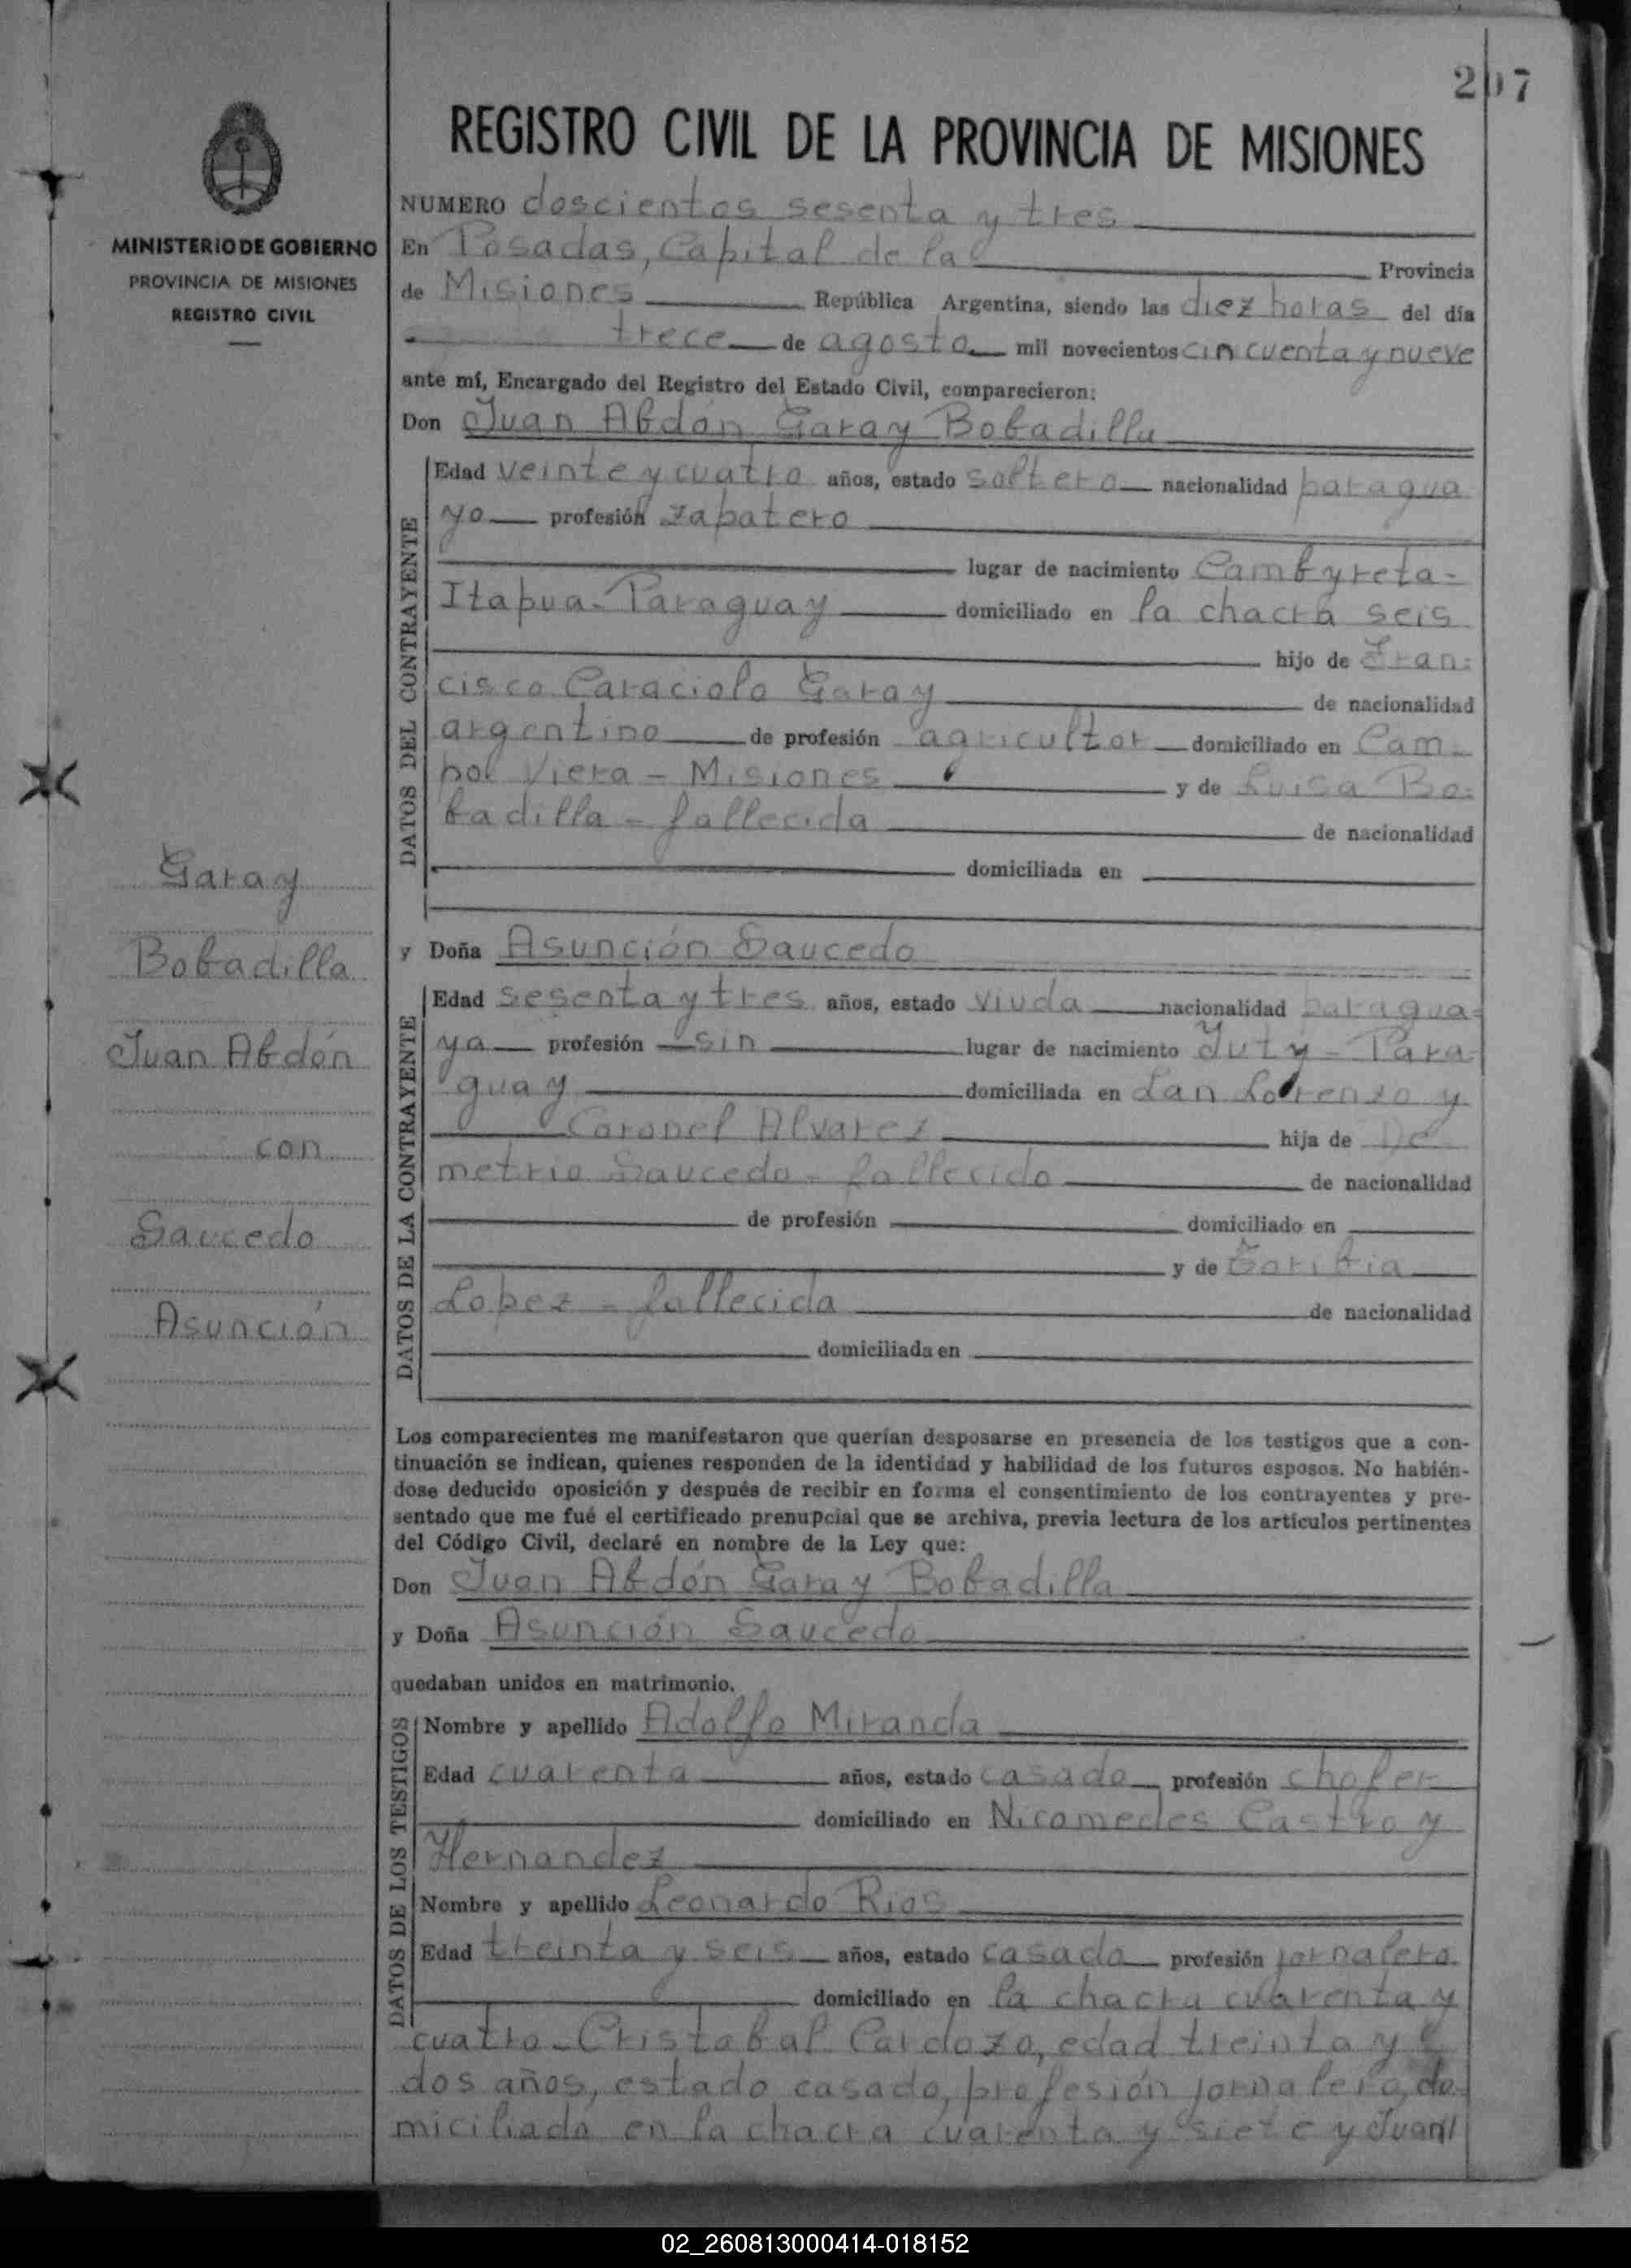 207
REGISTRO CIVIL DE LA PROVINCIA DE MISIONES
MINISTERIO DE GOBIERNO
PROVINCIA DE MISIONES
REGISTRO CIVIL
NUMERO doscientos sesenta y tres
En Posadas, Capital de la Provincia
de Misiones República Argentina, siendo las diez horas del día
trece de agosto mil novecientos cincuenta y nueve
ante mí, Encargado del Registro del Estado Civil, comparecieron:
Don Juan Abdón Garay Bobadilla
DATOS DEL CONTRAYENTE
Edad veinte y cuatro años, estado soltero nacionalidad paragua
yo profesión zapatero
lugar de nacimiento Cambyreta-
Itapua-Paraguay domiciliado en la chacra seis
hijo de Fran=
cisco Caraciolo Garay de nacionalidad
argentino de profesión agricultor domiciliado en Cam-
pol Viera - Misiones y de Luisa Bo=
badilla - fallecida de nacionalidad
domiciliada en
Garay
Bobadilla
Juan Abdón
con
Saucedo
Asunción
y Doña Asunción Saucedo
DATOS DE LA CONTRAYENTE
Edad sesenta y tres años, estado viuda nacionalidad paragua=
ya profesión sin lugar de nacimiento Yuty - Para-
guay domiciliada en San Lorenzo y
Coronel Alvarez hija de De
metrio Saucedo - fallecido de nacionalidad
de profesión domiciliado en
y de Toribia
Lopez - fallecida de nacionalidad
domiciliada en
Los comparecientes me manifestaron que querían desposarse en presencia de los testigos que a con-
tinuación se indican, quienes responden de la identidad y habilidad de los futuros esposos. No habién-
dose deducido oposición y después de recibir en forma el consentimiento de los contrayentes y pre-
sentado que me fué el certificado prenupcial que se archiva, previa lectura de los artículos pertinentes
del Código Civil, declaré en nombre de la Ley que:
Don Juan Abdón Garay Bobadilla
y Doña Asunción Saucedo
quedaban unidos en matrimonio.
DATOS DE LOS TESTIGOS
Nombre y apellido Adolfo Miranda
Edad cuarenta años, estado casado profesión chofer
domiciliado en Nicomedes Castro y
Hernandez
Nombre y apellido Leonardo Rios
Edad treinta y seis años, estado casado profesión jornalero
domiciliado en la chacra cuarenta y
cuatro - Cristobal Cardozo, edad treinta y
dos años, estado casado, profesión jornalero, do-
miciliado en la chacra cuarenta y siete y Juan
02_260813000414-018152